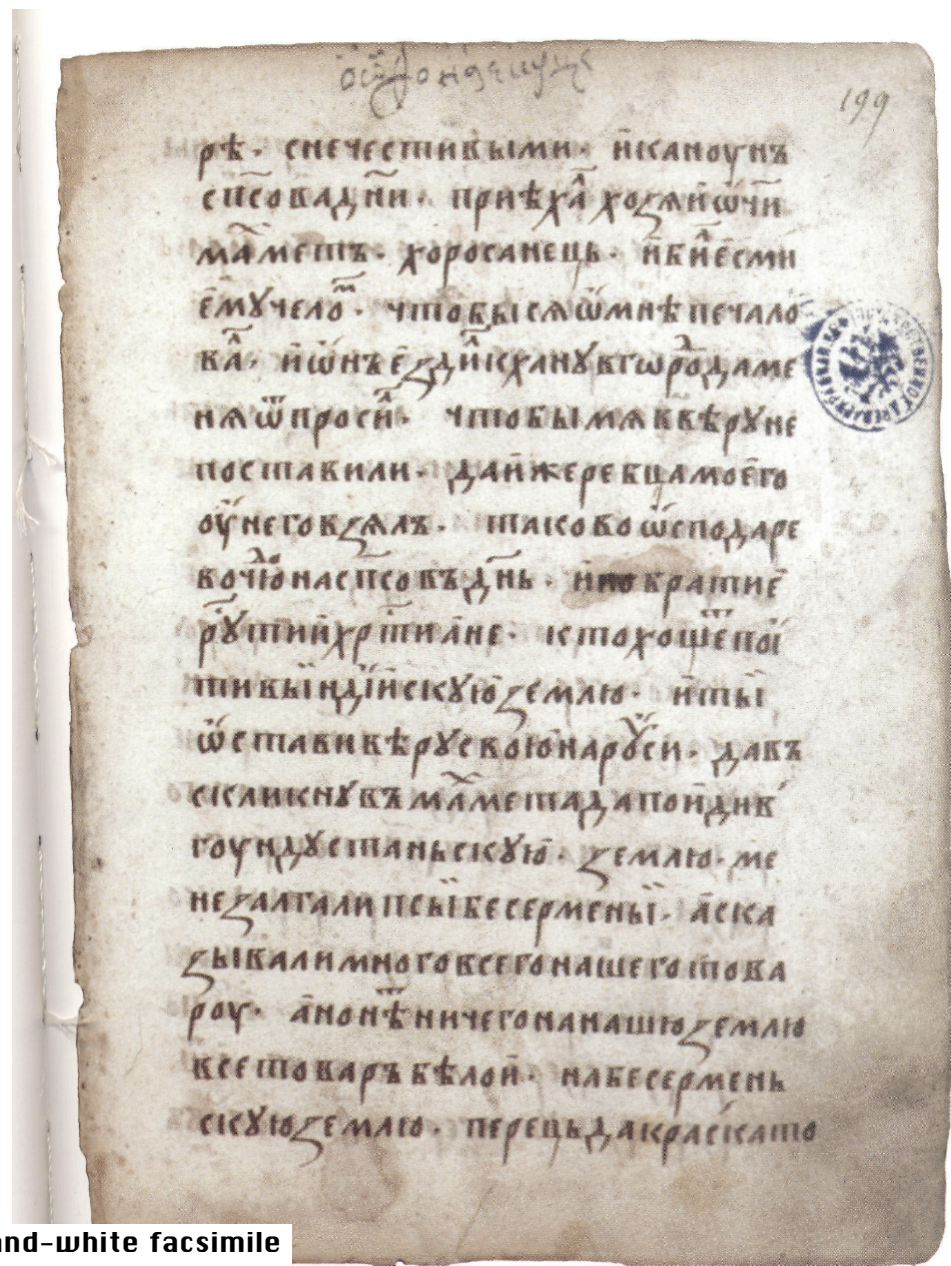 199
рѣ· снечестивыми· и҆каноунъ
сп҃сова дн҃и· приѣхаⷧ҇ хоꙁѧи҆ѡ҆чи
маⷯметъ· хоросанець· и҆биⷧ҇ е҆сми
е҆мꙋ челоⷨ· чтобысѧ ѡ҆ мнѣ печало
ваⷧ· и҆ ѡ҆нъ е҆ꙁдиⷧ҇ к ханꙋ в гѡроⷣ да ме
нѧ ѿпросиⷧ· чтобы мѧ в вѣрꙋ не
поставили· да и҆ жеребца моего
оу҆ него вꙁѧлъ· таково ѡ҆сподаре
во чюⷣо на сп҃совъ дн҃ь· и҆но братие
рꙋⷭ҇тии хрⷭ҇тиа҆не· кто хощеⷮ пои
ти в ы҆ндѣйскꙋю ꙁемлю· и҆ ты
ѡ҆стави вѣрꙋ свою на роуⷭ҇си· да въ
скликнꙋвъ маⷯмета да поиди в
гоундꙋстаньскꙋю· ꙁемлю· ме
не ꙁалгали псы бесермены· а҆ ска
ꙁывали много всего нашего това
роу· а҆но нѣⷮ ничего на нашю ꙁемлю
все товаръ бѣлои· на бесермень
скꙋю ꙁемлю· перець да краска то
and-white facsimile